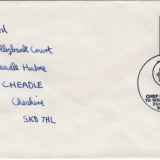 llybank Court
eadle Hulme
CHEADLE
Cheshire
SK8 7HL
CHIEF
TO BO